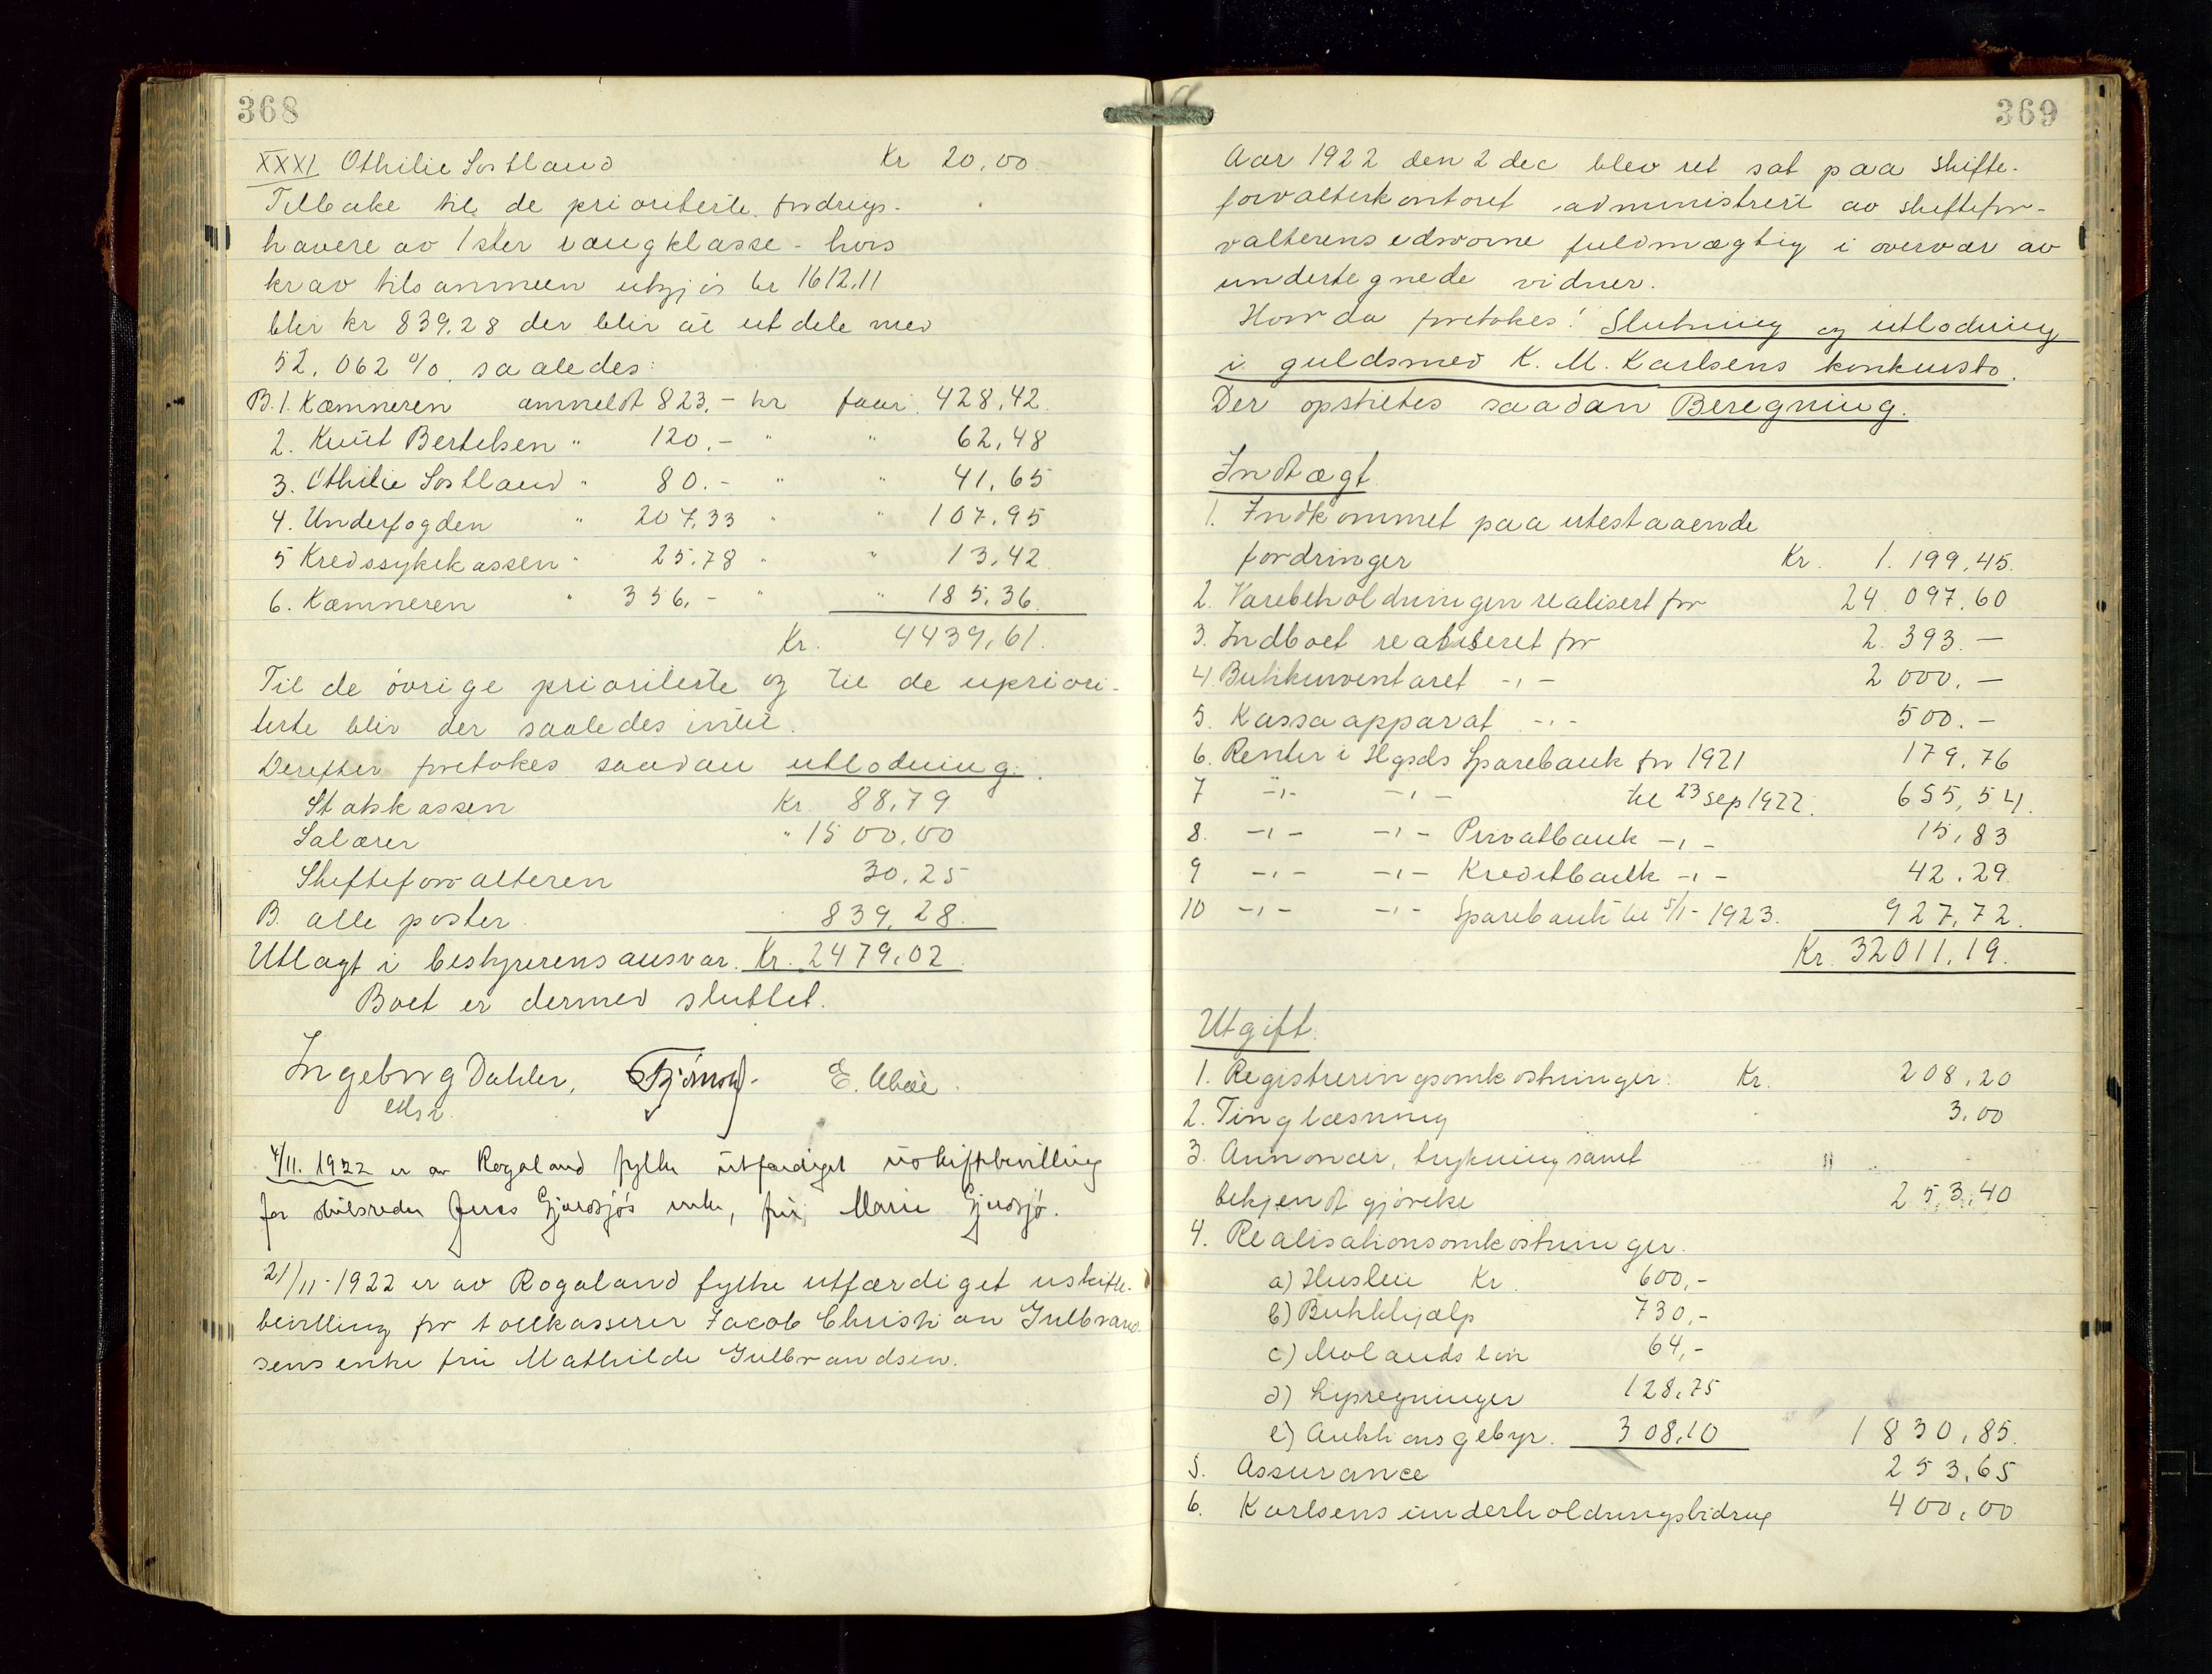 368
XXXI Othilie Sostland Kr 20,00
Tilbake til de prioriterte fordrings-
havere av 1ster rangklasse - hvis
krav tilsammen utgjør kr 1612.11
blir kr 839.28 der blir at utdele med
52,062 % saaledes:
B.1. Kæmneren anmeldt 823,- kr faar 428,42
2. Knut Bertelsen " 120,- " " 62,48
3. Othilie Sostland " 80.- " " 41,65
4. Underfogden " 207,33 " " 107,95
5 Kredssykekassen " 25,78 " " 13,42
6. Kæmneren " 356,- " " 185,36
Kr. 4439,61.
Til de övrige prioriterte og til de upriori-
terte blir der saaledes intet.
Derefter foretokes saadan utlodning.
Statskassen Kr. 88,79
Salærer " 1500,00
Skifteforvalteren 30,25
B. alle poster 839,28
Utlagt i bestyrerens ansvar. Kr. 2479,02
Boet er dermed sluttet.
Ingeborg Dahler,
4/11. 1922 er av Rogaland fylke utfærdiget uskiftebevilling
for skibsreder Jens Gjerdsjøs enke, fru Marie Gjerdsjø.
21/11-1922 er av Rogaland fylke utfærdiget uskifte-
bevilling for toldkasserer Jacob Christian Gulbrand-
sens enke fru Mathilde Gulbrandsen.
369
Aar 1922 den 2 dec blev ret sat paa skifte-
forvalterkontoret administrert av skiftefor-
valterens edsvorne fuldmægtig i overvær av
undertegnede vidner.
Hvor da foretokes: Slutning og utlodning
i guldsmed K. M. Karlsens konkursbo.
Der opsattes saadan Beregning.
Indtægt
1. Indkommet paa utestaaende
fordringer Kr. 1.199,45.
2. Varebeholdningen realisert for 24.097,60
3. Indboet realiseret for 2.393.-
4. Butikinventaret -,- 2 000.-
5. Kassaapparat -,- 500.-
6. Renter i Hgsds Sparebank for 1921 179,76
7 -,- -,- til 23 sep 1922. 655,54.
8. -,- -,- Privatbank -,- 15,83
9 -,- -,- Kreditbank -,- 42.29
10 -,- -,- Sparebank til 5/1-1923. 927,72.
Kr. 32011,19.
Utgift.
1. Registreringsomkostninger: Kr. 208,20
2. Tinglæsning 3,00
3. Annoncer, trykning samt "
bekjendtgjørelse 253,40
4. Realisationsomkostninger.
a) Husleie Kr. 600,-
b) Butikhjælp 730,-
c) Molands løn 64,-
d) Lysregninger 128,75
e) Auktionsgebyr. 308,10 1830,85.
5. Assurance 253,65
6. Karlsens underholdningsbidrag 400,00